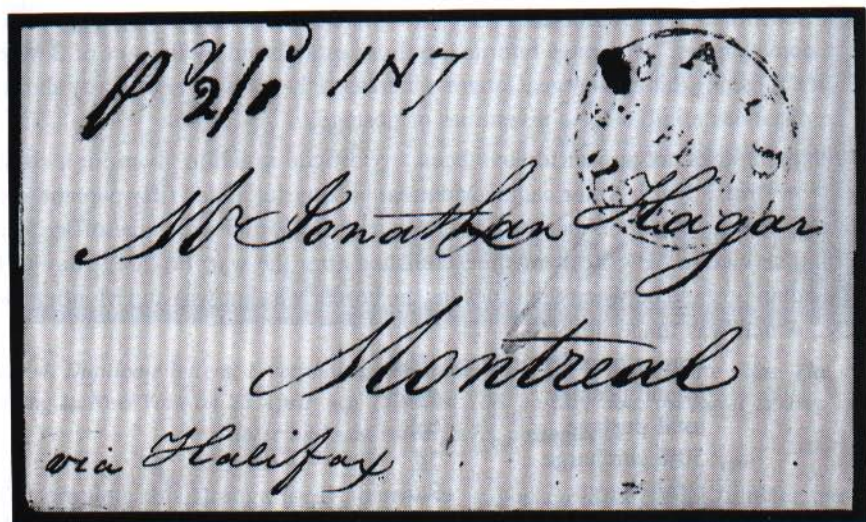 Pd 2/8 1N7
PAID
Mr Jonathan Hagar
Montreal
via Halifax